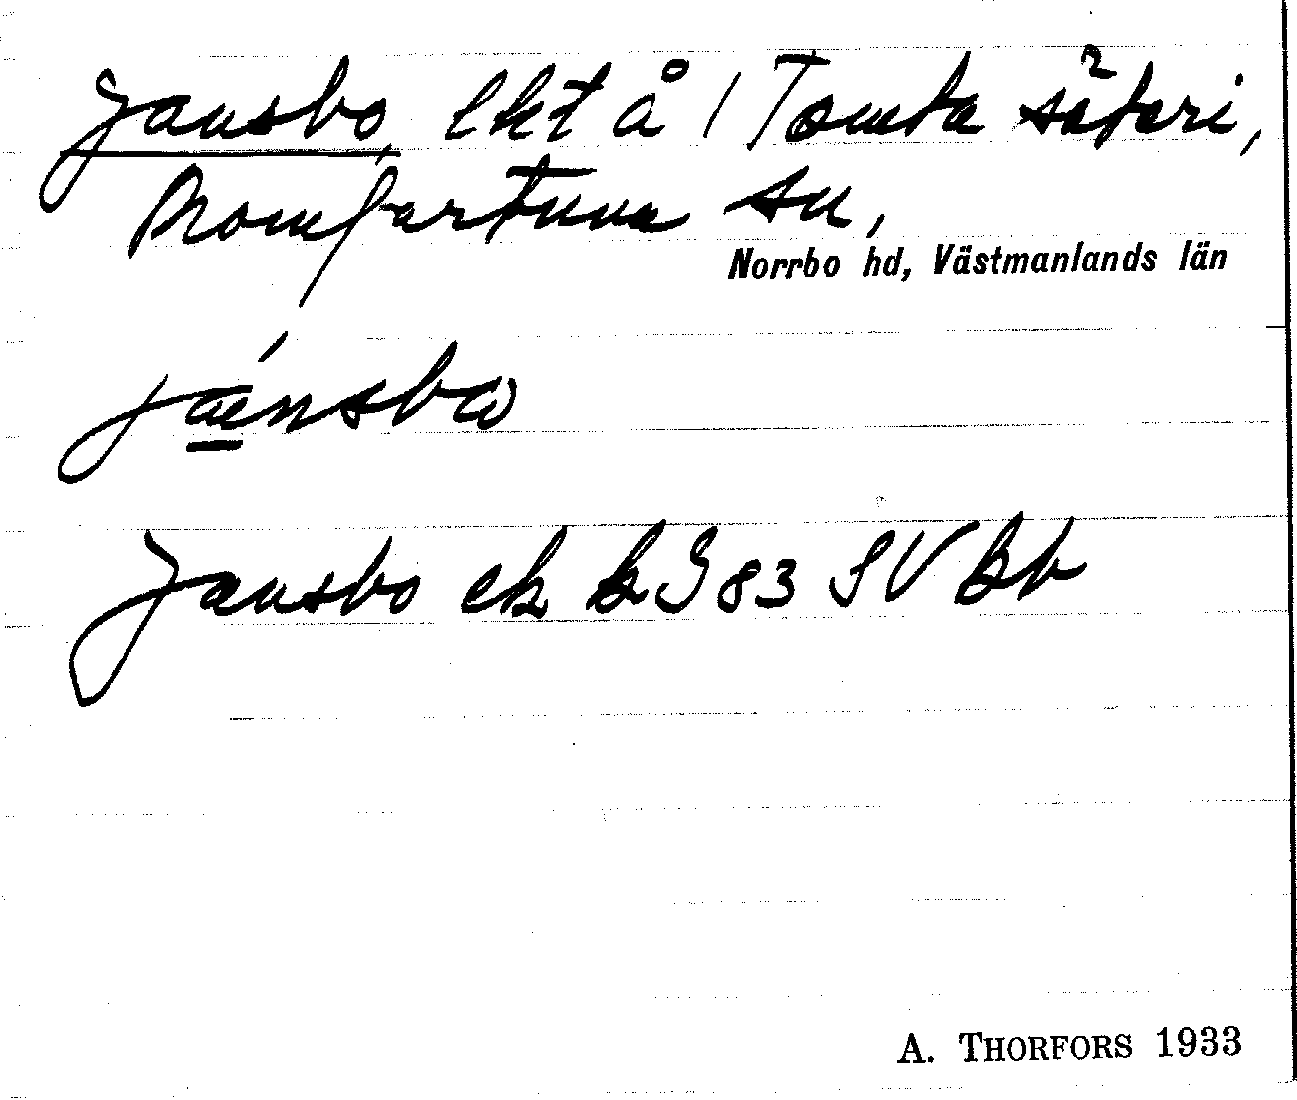 Jansbo, lht å 1 Tomta säteri,
Romfartuna sn,
Norrbo hd, Västmanlands län
jáensbω
Jansbo ek bS 83 SV Bb
A. THORFORS 1933